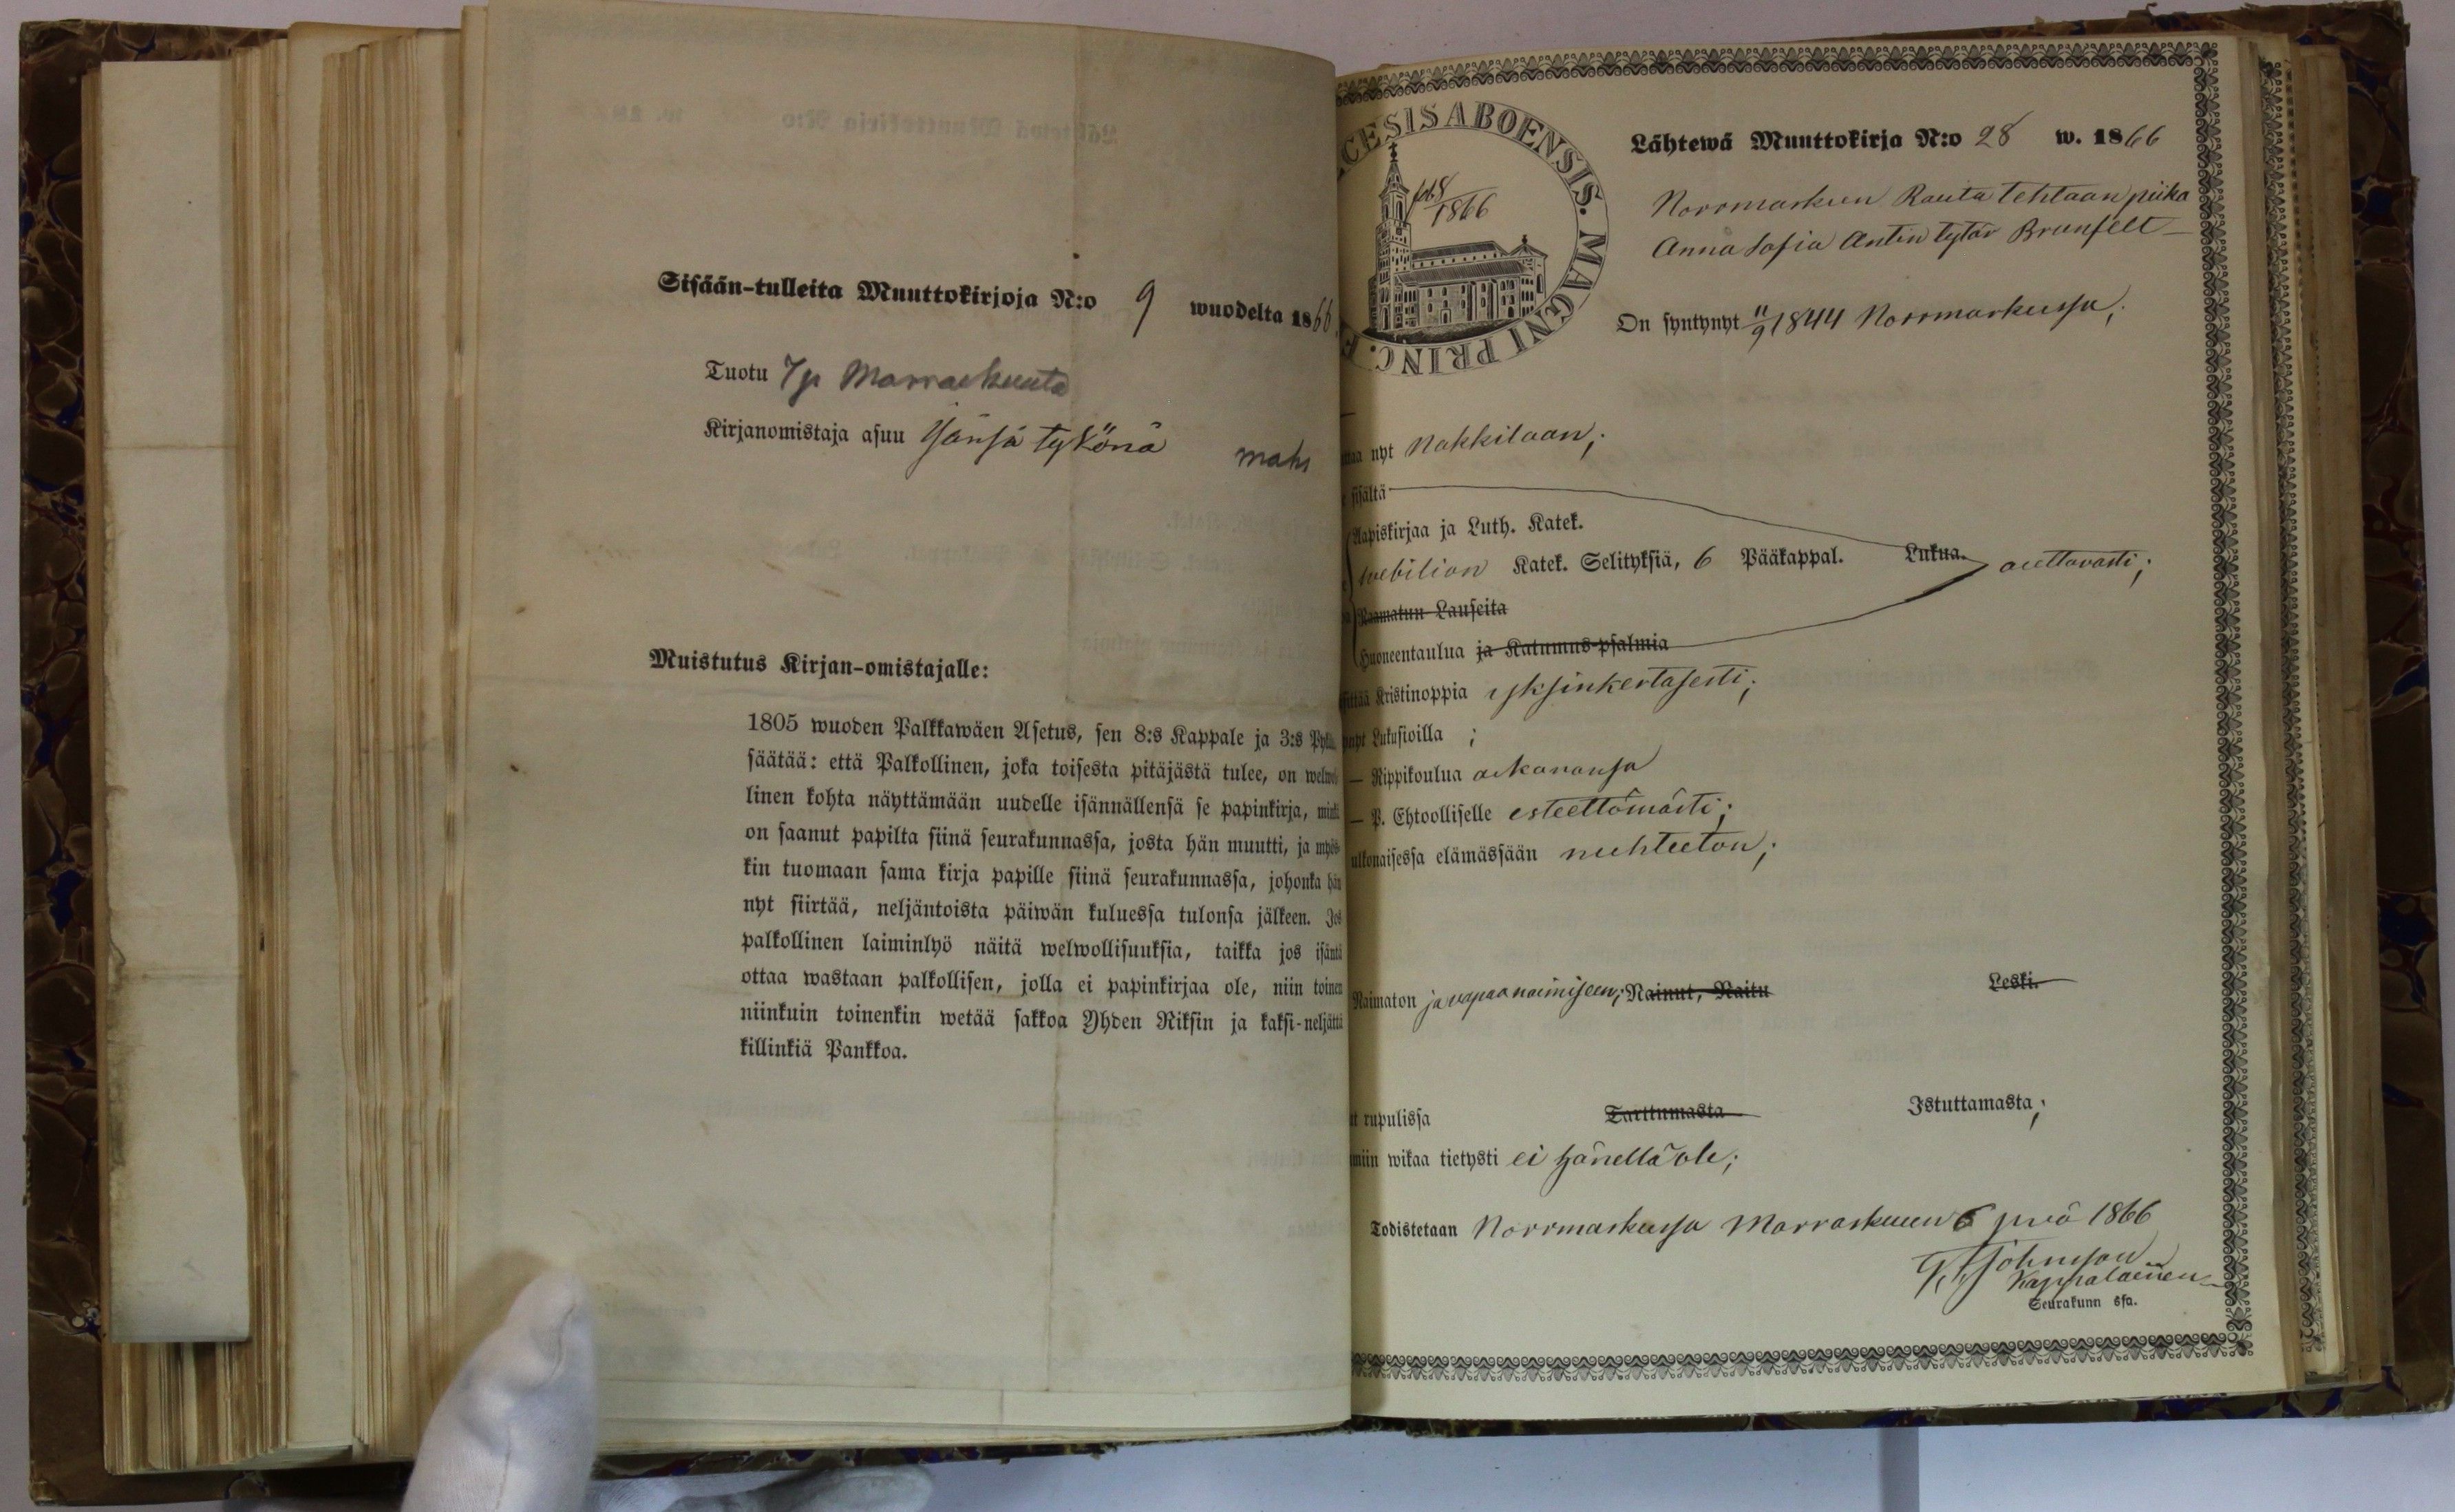 Sisään-tulleita Muuttokirjoja N:o 9 wuodelta 1866.
Tuotu 7 p Marraskuuta
Kirjanomistaja asuu Jänsä tykönä
Muistutus Kirjan-omistajalle:
1805 wuoden Palkkawäen Asetus, sen 8:s Kappale ja 3:s
säätää: että Palkollinen, joka toisesta pitäjästä tulee, on welwol-
linen kohta näyttämään uudelle isännällensä se papinkirja, minkä
on saanut papilta siinä seurakunnassa, josta hän muutti, ja myös-
kin tuomaan sama kirja papille siinä seurakunnassa, johonka hän
nyt siirtää, neljäntoista päiwän kuluessa tulonsa jälkeen. Jos
palkollinen laiminlyö näitä welwollisuuksia, taikka jos isäntä
ottaa wastaan palkollisen, jolla ei papinkirjaa ole, niin toinen
niinkuin toinenkin wetää sakkoa Yhden Riksin ja kaksi-neljättä
killinkiä Pankkoa.
CESIS ABOENSIS. MAGNI PRINC. F
1866
Lähtewä Muuttokirja N:o 28 w. 1866
Norrmarkun Rauta tehtaan piika
Anna Sofia Antin tytär Brunfelt
On syntynyt 11/9 1844 Norrmarkussa;
nyt Nakkilaan;
sisältä
Aapiskirjaa ja Luth. Katek.
Svebilion Katek. Selityksiä, 6 Pääkappal. Lukua. auttavasti;
Raamatun Lauseita
Huoneentaulua ja Katumus-psalmia
Kristinoppia yksinkertasesti;
Lukusioilla ;
— Rippikoulua aikanansa
— P. Ehtoolliselle esteettömästi;
ulkonaisessa elämässään nuhteeton;
Naimaton ja vapaa naimiseen; Nainut, Naitu Leski.
rupulissa Tarttumasta Istuttamasta;
wikaa tietysti ei hänellä ole;
Todistetaan Norrmarkussa Marraskuun 6 pvä 1866
Johnsson
Kappalainen
Seurakunn ssa.